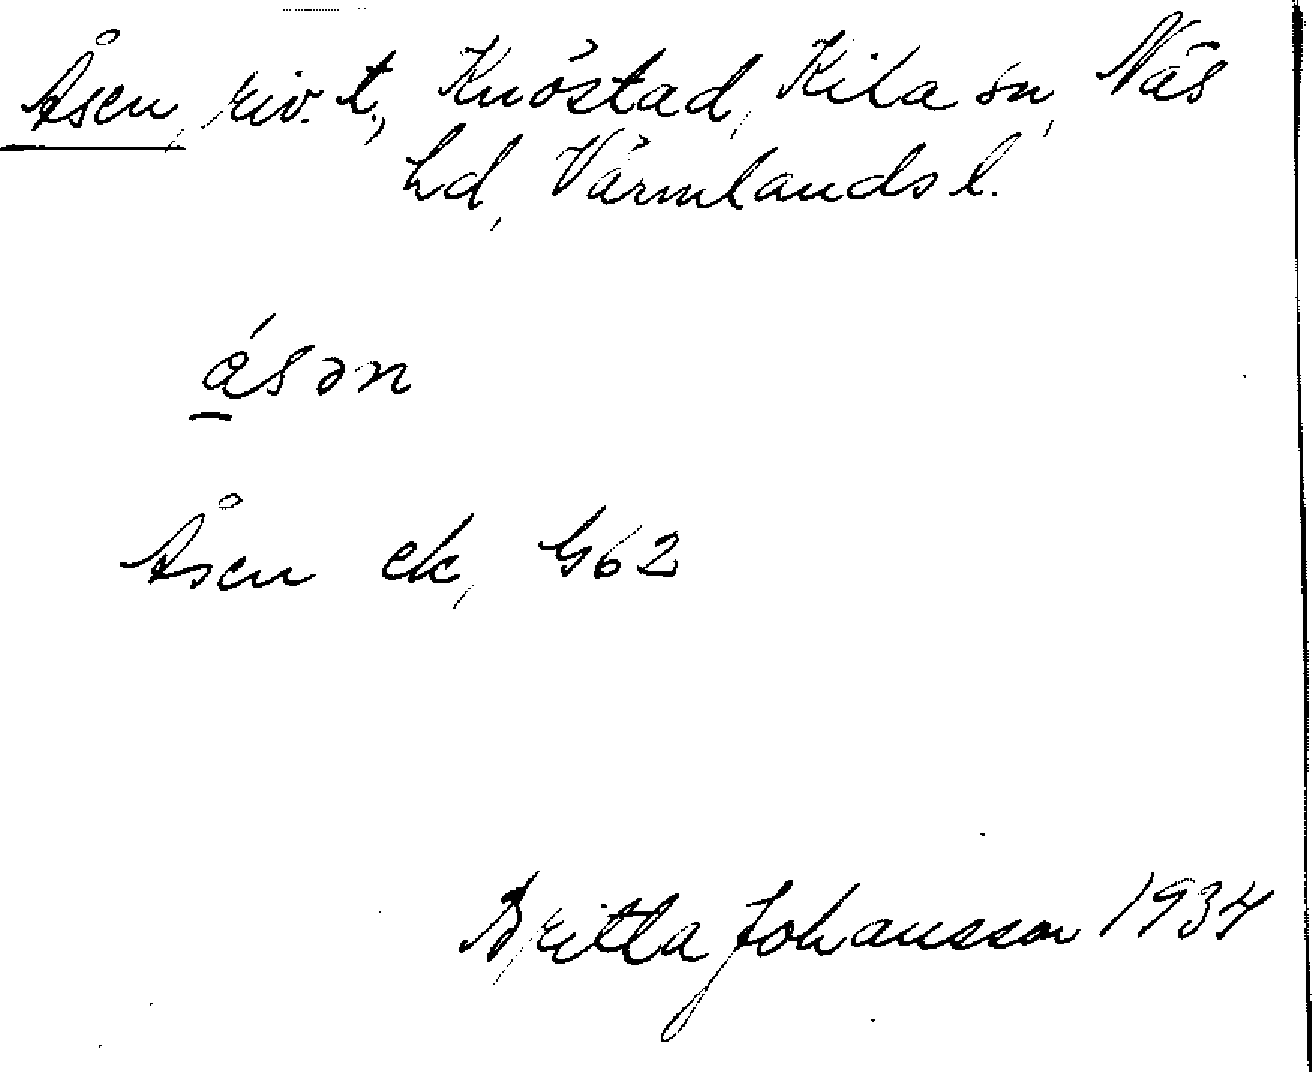 Åsen, riv. t., Knöstad, Kila sn, Näs
hd, Värmlands l.
ǻsən
Åsen ek, G62
Britta Johansson 1934